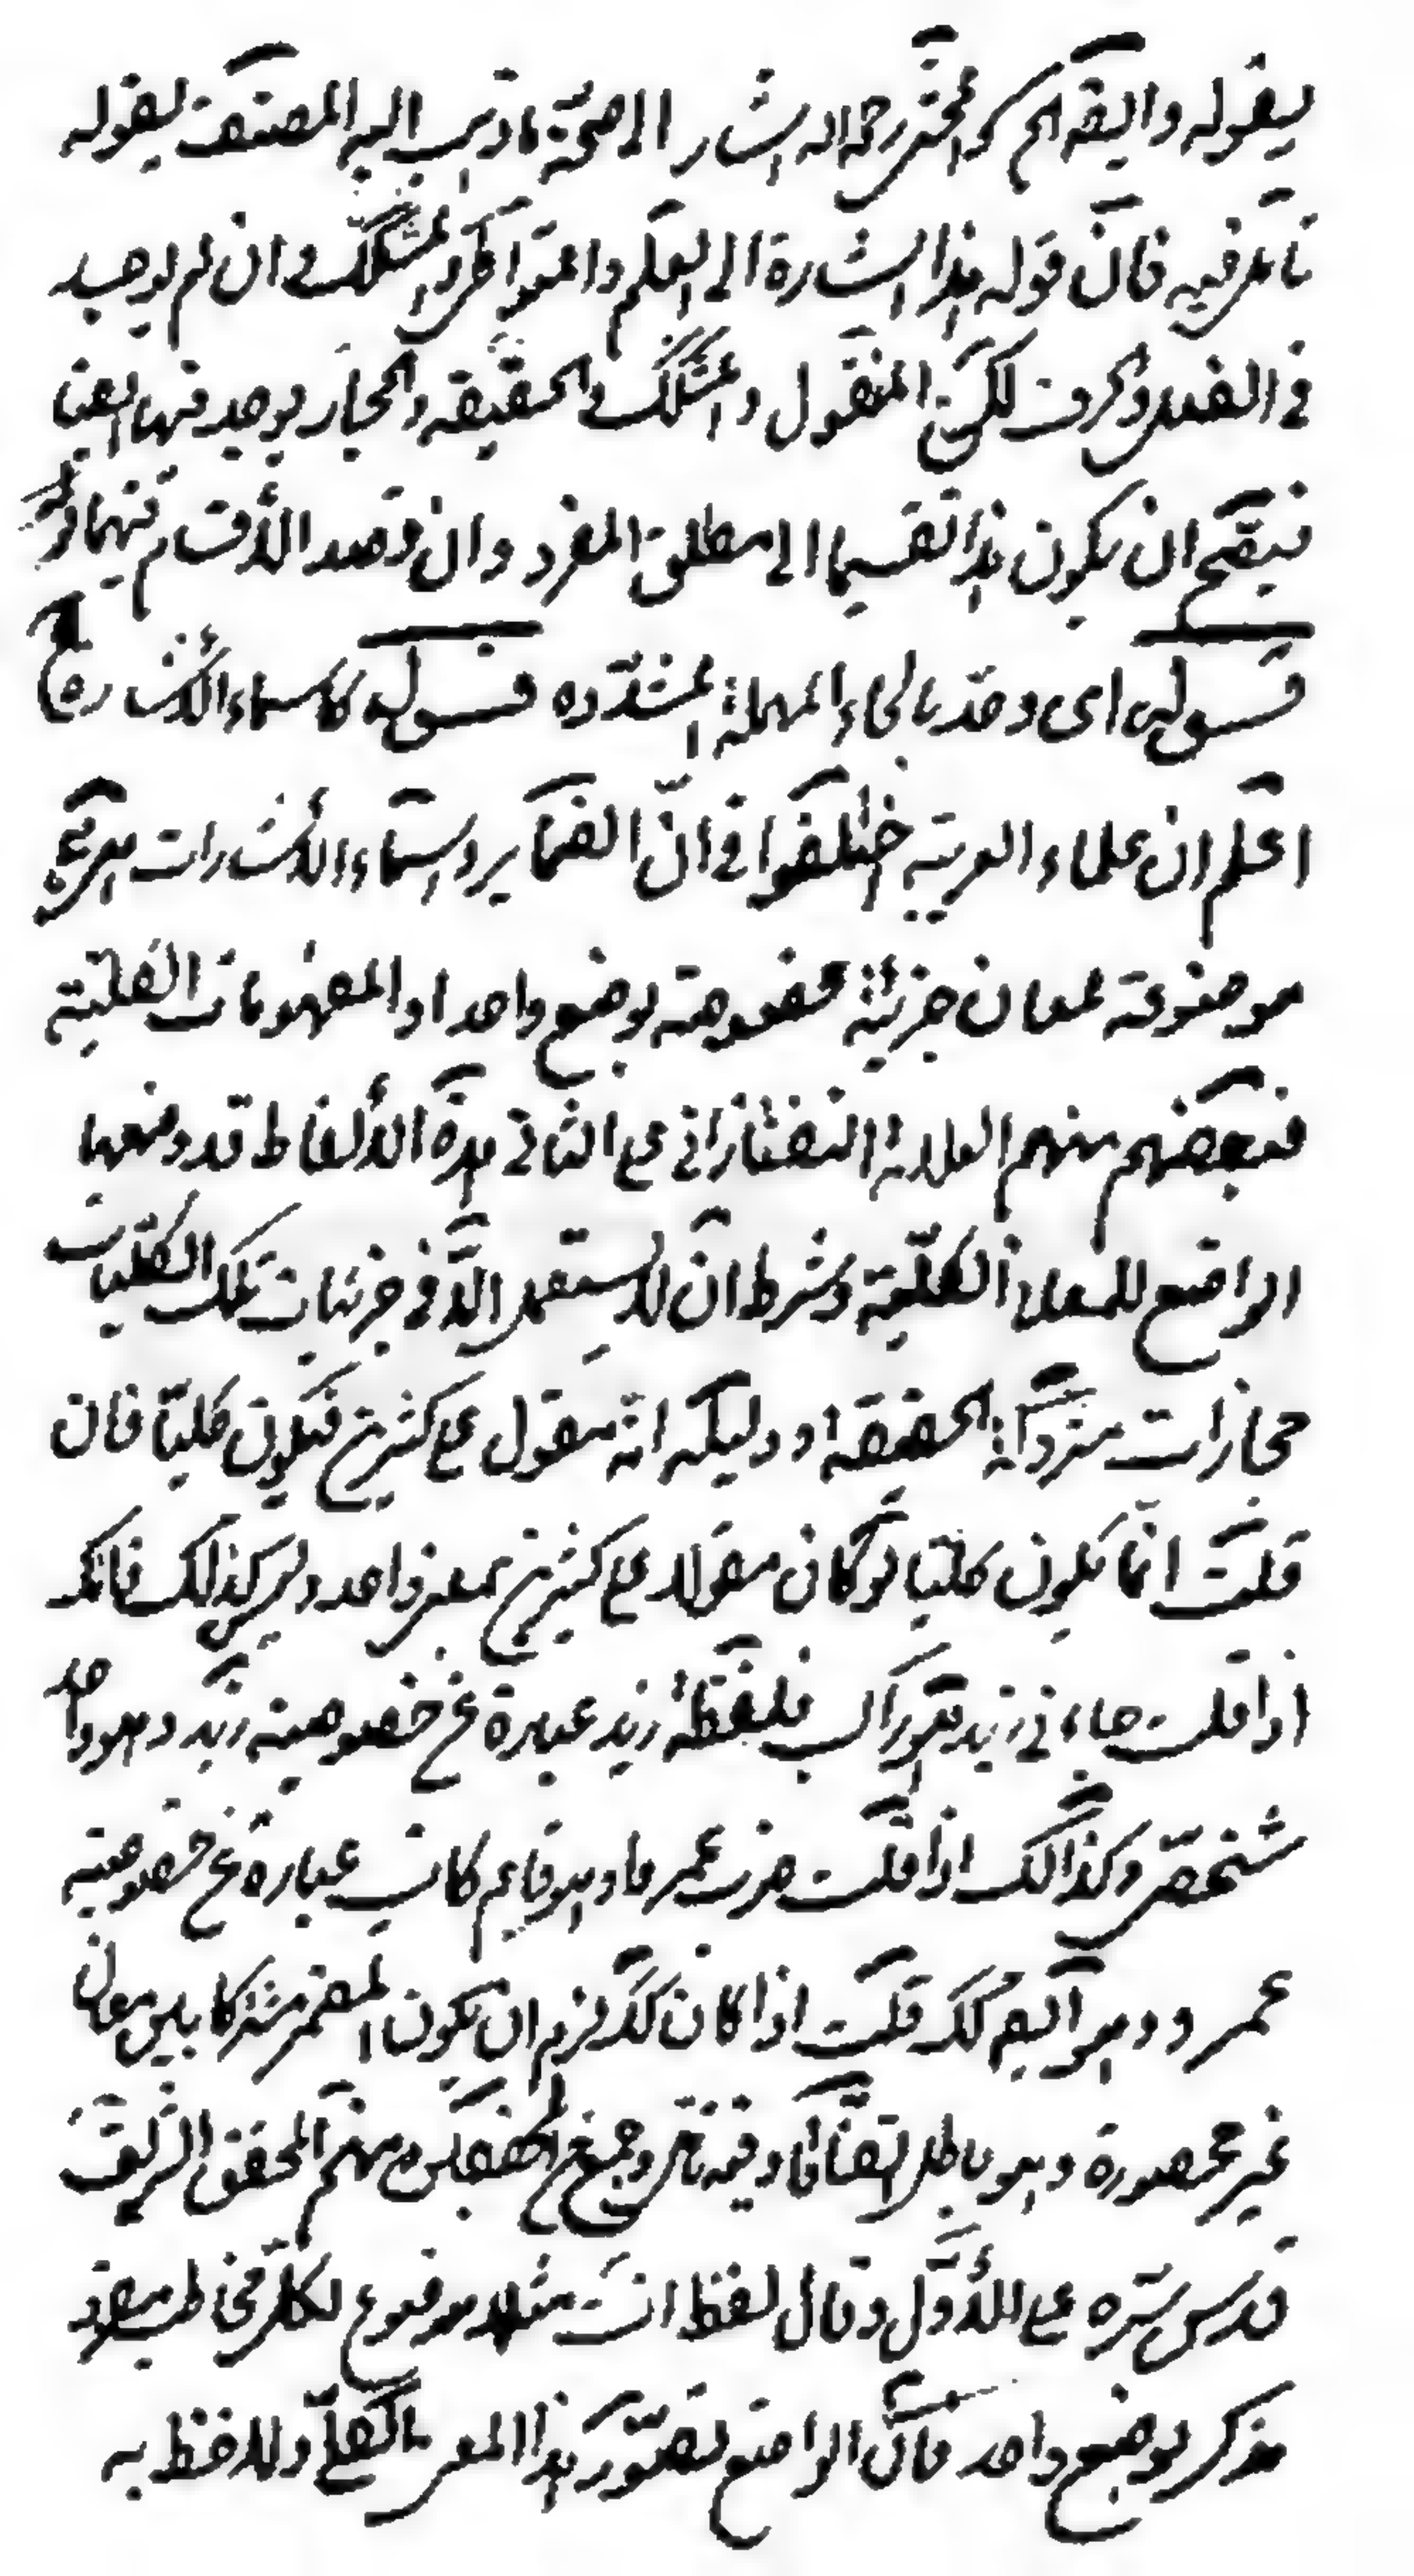 بقوله وايضا الخ كـ المحشى رحمه الله اشار الى صحة ما ذهب اليه المصنف بقوله
تأمل فيه فان قوله هذا اشارة الى العلم والمتواطى والمشكك وان لم يوجد
فى الفعل والحرف لكن المنقول والمشكك والحقيقة والمجاز يوجد فيها ايضا
فيصح ان يكون هذا تقسيما الى مطلق المفرد وان قصد الأقسام فيهما
قــوله اى وحد بالحاء المهملة المشددة قــوله كاسماء الأشارة الخ
اعلم ان علماء العربية اختلفوا فى انّ الضماير واسماء الأشارات
موضوعة لمعان جزئية مخصوصة بوضع واحد او المفهومات الكلية
فبعضهم منهم العلامة التفتازانى على الثانى هذه الألفاظ قد وضعها
الواضع للمعانى الكلّية وشرط ان لا يستعمل الّا فى جزئيات تلك الكليات
مجازات متروكة الحقيقة ودليله انه مقول على كثيرين فيكون كليا فان
قلت انما يكون كليا لو كان مقولا على كثيرين بمعنى واحد وليس كذلك فانك
اذا قلت جاءنى زيد وهو راكب فلفظة زيد عبارة عن خصوصية زيد وهو واحد
شخصى وكذالك اذا قلت ضرب عمر وهو قايم كانت عبارة عن خصوصية
عمرو وهو ايضا كك قلت اذا كان كك لزم ان يكون المضمر مشتركا بين معان
غير محصورة وهو باطل اتفاقا وفيه نظر وجمع من المحققين منهم المحقق الشريف
قدس سره على الأوّل وقال لفظ انت مثلا موضوع لكل مخاطب مفرد
مذكر بوضع واحد فان الواضع تصوّر هذا المعنى الكلّى ولاحظ به